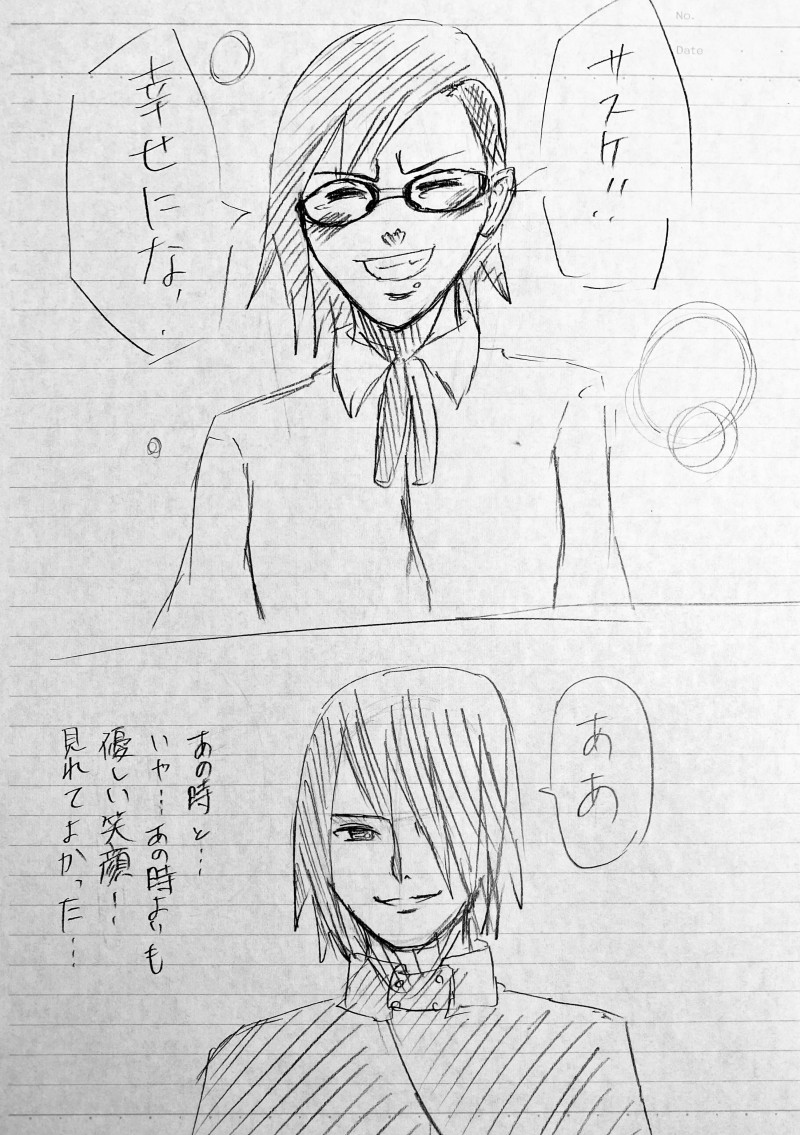 No.
Date
サスケ!!
幸せにな,..
ああ
あの時と…
いや…あの時よりも
優しい笑顔!!
見れてよかった…